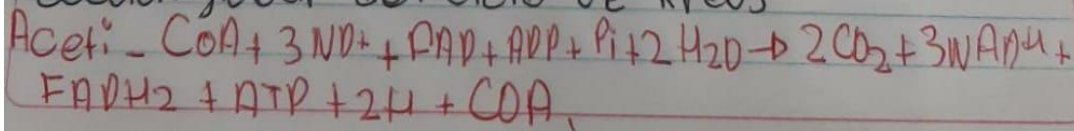 Aceti - COA + 3 ND+ + FAD + ADP + Pi + 2 H2O → 2CO2 + 3NADH +
FADH2 + ATP + 2H + COA